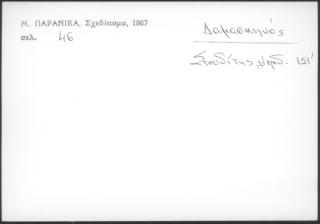 Μ. ΠΑΡΑΝΙΚΑ, Σχεδίασμα, 1867
σελ. 46
Δαμασκηνός
Στουδίτης, ὑποδ. ΙΣΤ'